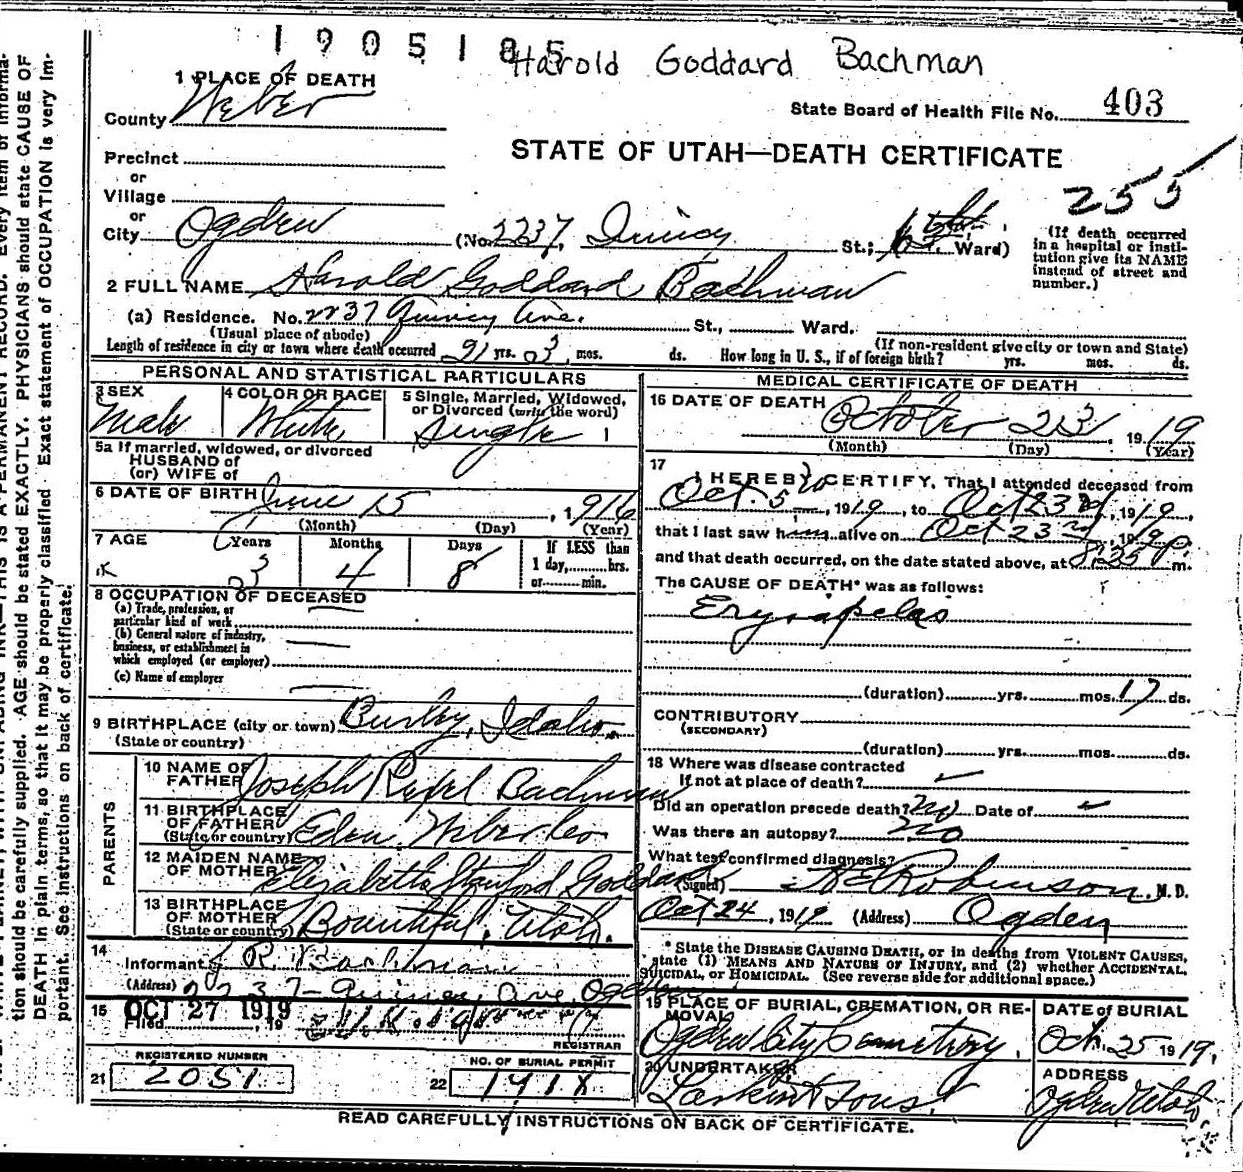 1905185
Harold Goddard Bachman
1 PLACE OF DEATH
County Weber
State Board of Health File No. 403
STATE OF UTAH—DEATH CERTIFICATE
255
Precinct
or
Village
or
City Ogden (No. 2237, Quincy St.; Ward)
(If death occurred in a hospital or institution give its NAME instead of street and number.)
2 FULL NAME Harold Goddard Bachman
(a) Residence. No. 2237 Quincy Ave. St., Ward.
(Usual place of abode) (If non-resident give city or town and State)
Length of residence in city or town where death occurred yrs. 3 mos. ds. How long in U. S., if of foreign birth? yrs. mos. ds.
PERSONAL AND STATISTICAL PARTICULARS
3 SEX Male
4 COLOR OR RACE White
5 Single, Married, Widowed, or Divorced (write the word) Single
5a If married, widowed, or divorced
HUSBAND of
(or) WIFE of
6 DATE OF BIRTH June 15, 1916
(Month) (Day) (Year)
7 AGE Years 3 Months 4 Days 8 If LESS than 1 day, hrs. or min.
8 OCCUPATION OF DECEASED
(a) Trade, profession, or particular kind of work
(b) General nature of industry, business, or establishment in which employed (or employer)
(c) Name of employer
9 BIRTHPLACE (city or town) Burley, Idaho.
(State or country)
PARENTS
10 NAME OF FATHER Joseph Bachman
11 BIRTHPLACE OF FATHER (State or country) Eden, Weber Co
12 MAIDEN NAME OF MOTHER Elizabeth Stanford Goddard
13 BIRTHPLACE OF MOTHER (State or country) Bountiful, Utah.
14
Informant J. R. Bachman
(Address) 2237 Quincy Ave, Ogden
15 OCT 27 1919
Filed , 19
REGISTRAR
REGISTERED NUMBER
21 2051
NO. OF BURIAL PERMIT
22
MEDICAL CERTIFICATE OF DEATH
16 DATE OF DEATH October 23, 1919
(Month) (Day) (Year)
17
I HEREBY CERTIFY, That I attended deceased from
Oct. 5, 1919, to Oct 23d, 1919,
that I last saw him alive on Oct 23rd, 1919,
and that death occurred, on the date stated above, at 8:35 P m.
The CAUSE OF DEATH* was as follows:
Erysipelas
(duration) yrs. mos. 17 ds.
CONTRIBUTORY
(SECONDARY)
(duration) yrs. mos. ds.
18 Where was disease contracted
If not at place of death?
Did an operation precede death? no Date of
Was there an autopsy? no
What test confirmed diagnosis?
(Signed) Robinson, M.D.
Oct 24, 1919 (Address) Ogden
* State the DISEASE CAUSING DEATH, or in deaths from VIOLENT CAUSES, state (1) MEANS AND NATURE OF INJURY, and (2) whether ACCIDENTAL, SUICIDAL, or HOMICIDAL. (See reverse side for additional space.)
19 PLACE OF BURIAL, CREMATION, OR REMOVAL
Ogden City Cemetery.
DATE of BURIAL
Oct. 25 1919.
20 UNDERTAKER
Larkin & Sons.
ADDRESS
Ogden Utah
READ CAREFULLY INSTRUCTIONS ON BACK OF CERTIFICATE.
tion should be carefully supplied. AGE should be stated EXACTLY. PHYSICIANS should state CAUSE OF
DEATH in plain terms, so that it may be properly classified. Exact statement of OCCUPATION is very im-
portant. See instructions on back of certificate.